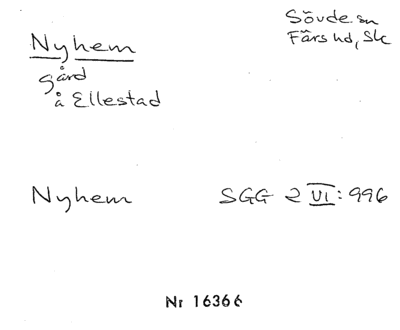 Nyhem
gård
å Ellestad
Sövde sn
Färs hd, Sk
Nyhem
SGG 2 VI: 996
Nr 16366